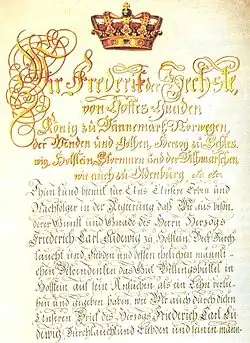 Wir Frederik der Sechste,
von Gottes Gnaden
König zu Dännemark, Norwegen,
der Wenden und Gothen, Herzog zu Schles-
wig, Holstein, Stormarn und der Dithmarschen,
wie auch zu Oldenburg etc. etc.
Thun kund hiemit für Uns Unsere Erben und
Nachfolger in der Regierung daß Wir aus beson-
derer Gunst und Gnade des Herrn Herzogs
Friederich Carl Ludewig zu Holstein Beck Durch-
laucht und Liebden und dessen ehelichen männli-
chen Descendenten das Gut Wellingsbüttel in
Holstein auf sein Ansuchen als ein Lehn verlie-
hen und gegeben haben, wie Wir auch durch diesen
Unseren Brief des Herzogs Friederich Carl Lu-
dewig Durchlaucht und Liebden und seinen männ-